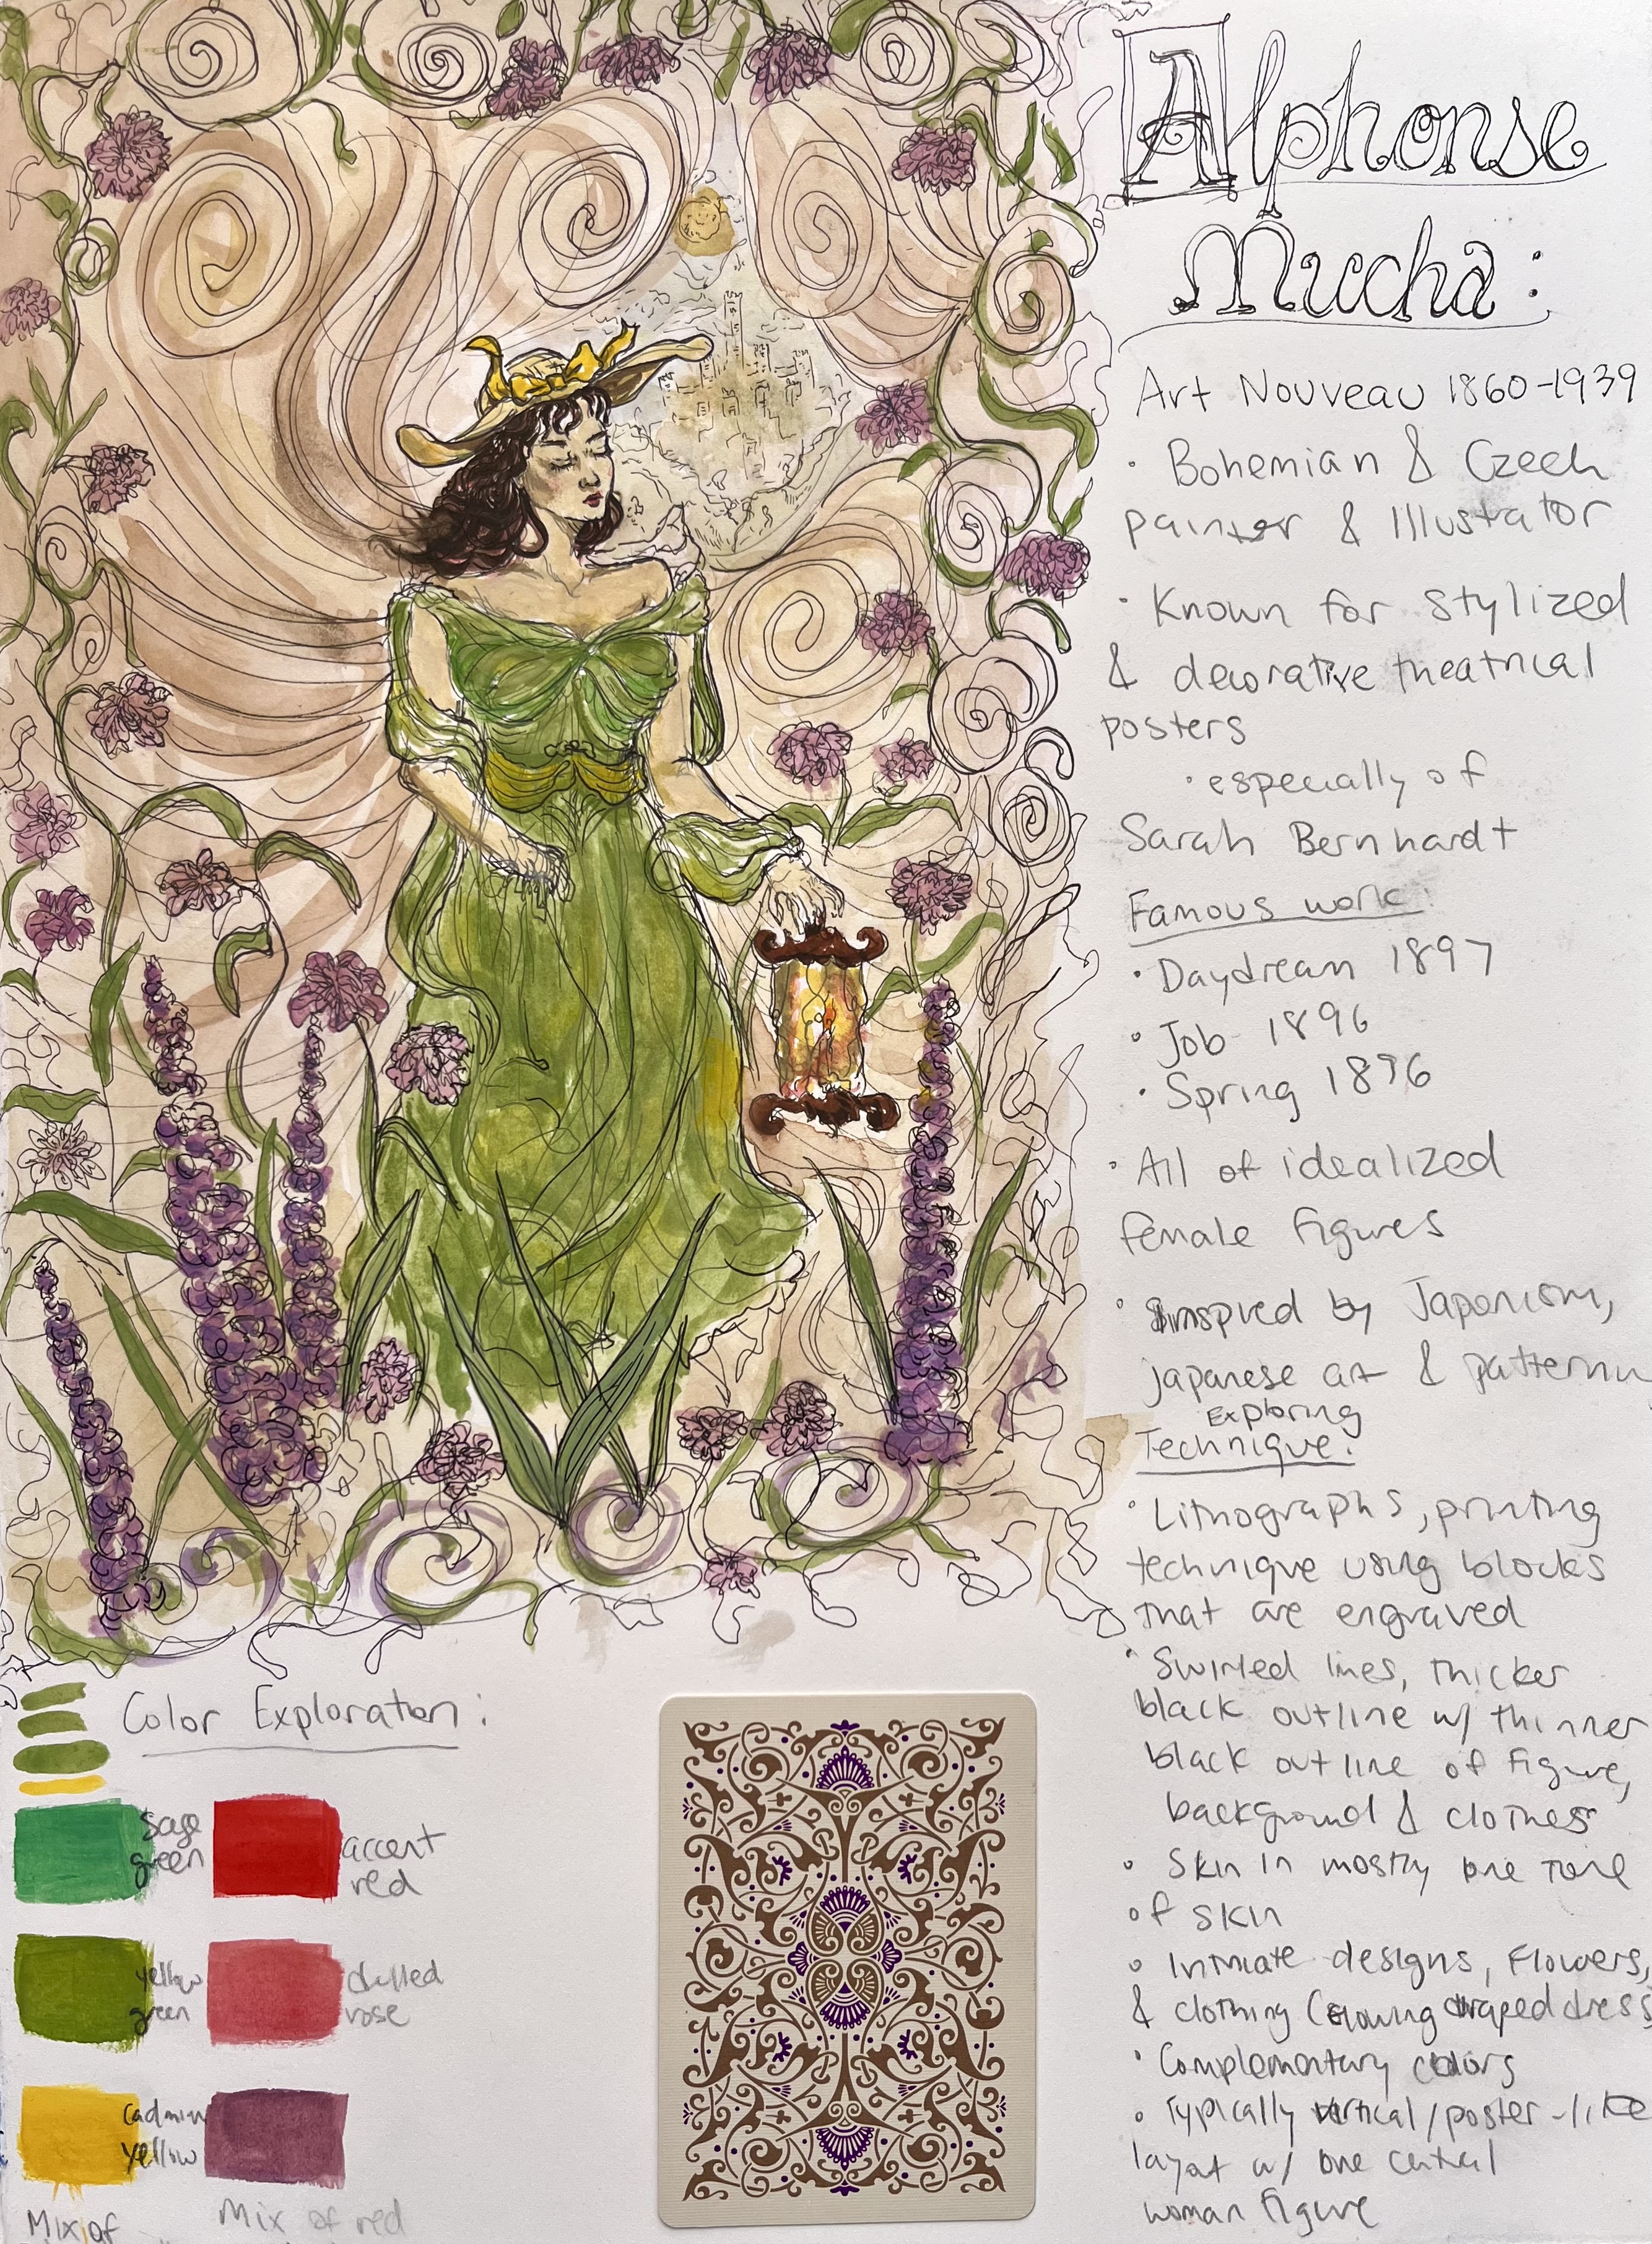 Alphonse
Mucha:
Art Nouveau 1860-1939
· Bohemian & Czech
painter & Illustrator
· Known for stylized
& decorative theatrical
posters
· especially of
Sarah Bernhardt
Famous work:
· Daydream 1897
· Job 1896
· Spring 1896
· All of idealized
female figures
· inspired by Japonism,
japanese art & pattern
Exploring
Technique:
· Lithographs, printing
technique using blocks
that are engraved
· Swirled lines, thicker
black outline w/ thinner
black outline of figure,
background & clothes
· Skin in mostly one tone
of skin
· Intimate designs, Flowers,
& clothing (flowing draped dress
· Complementary colors
· Typically vertical/poster-like
layout w/ one central
woman figure
Color Exploration:
Sage
green
accent
red
yellow
green
dulled
rose
cadmium
yellow
Mix of
Mix of red